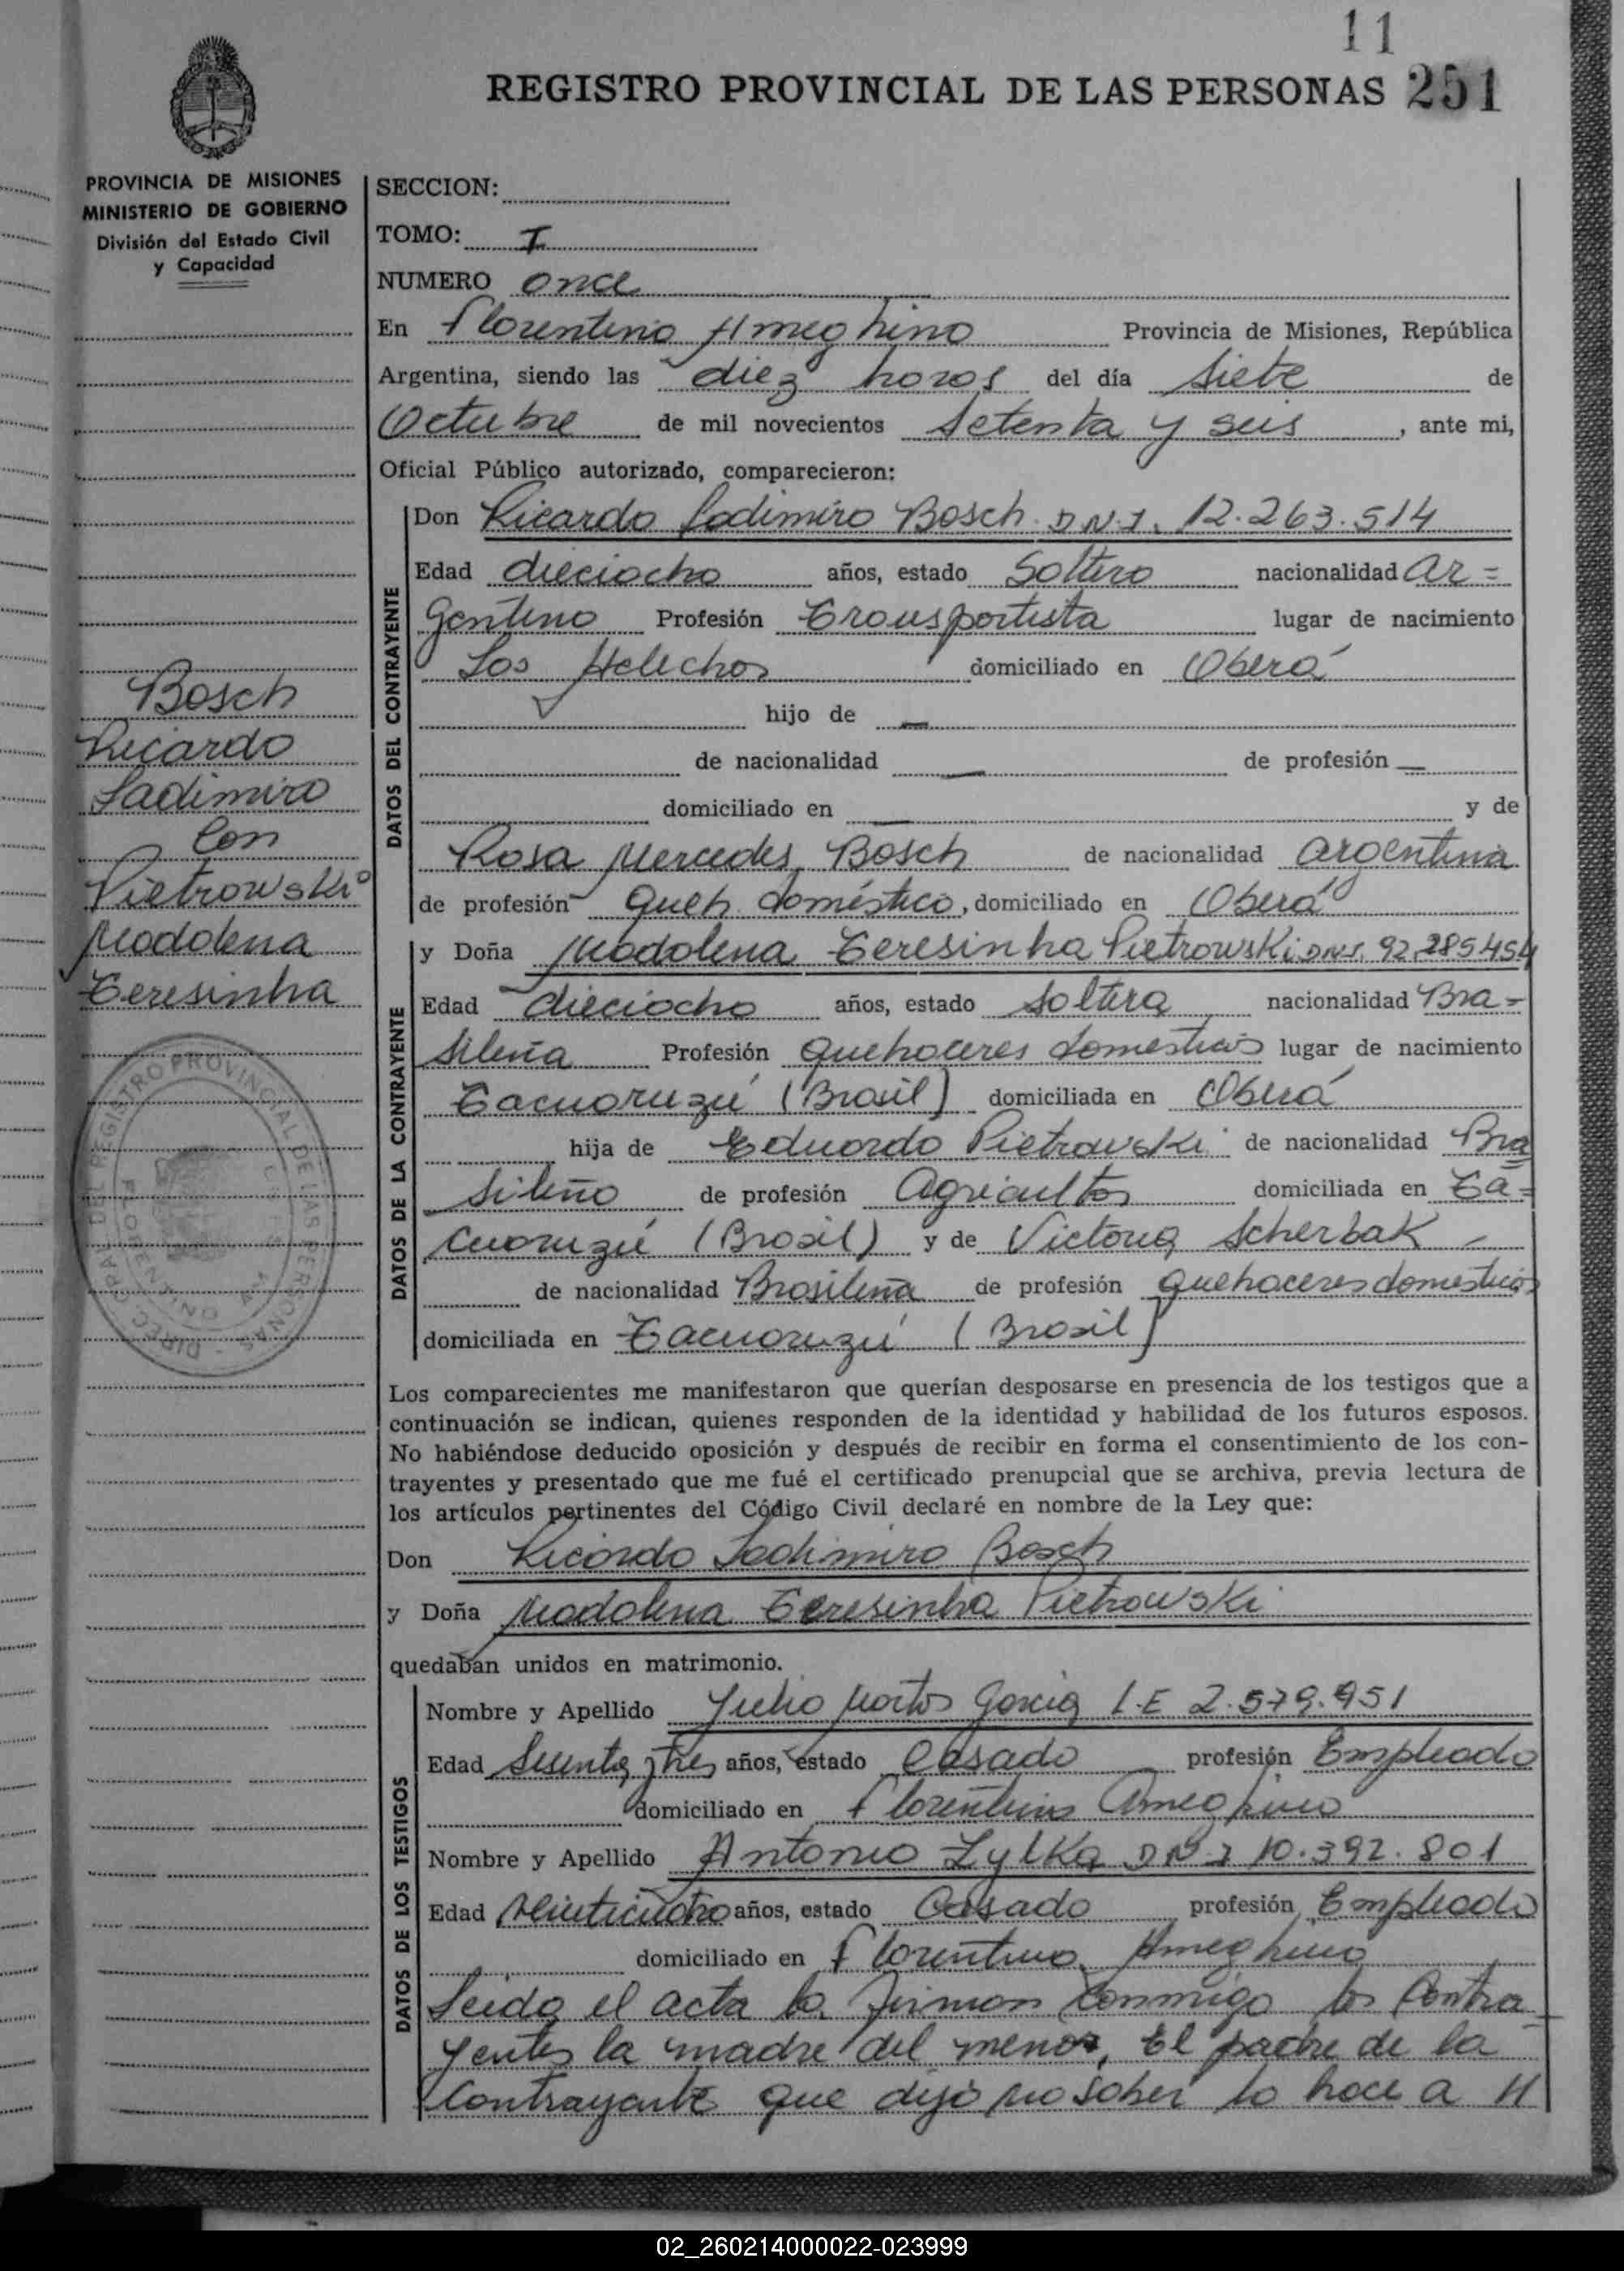 11
REGISTRO PROVINCIAL DE LAS PERSONAS 251
PROVINCIA DE MISIONES
MINISTERIO DE GOBIERNO
División del Estado Civil
y Capacidad
SECCION:
TOMO: I
NUMERO once
En Florentino Ameghino Provincia de Misiones, República
Argentina, siendo las diez horas del día siete de
Octubre de mil novecientos setenta y seis, ante mi,
Oficial Público autorizado, comparecieron:
DATOS DEL CONTRAYENTE
Don Ricardo Ladimiro Bosch D.N.I. 12.263.514
Edad dieciocho años, estado Soltero nacionalidad Ar=
gentino Profesión Transportista lugar de nacimiento
Los Helechos domiciliado en Oberá
hijo de —
de nacionalidad — de profesión —
domiciliado en — y de
Rosa Mercedes Bosch de nacionalidad argentina
de profesión Queh. doméstico, domiciliado en Oberá
Bosch
Ricardo
Ladimiro
Con
Pietrowski
Madalena
Teresinha
DATOS DE LA CONTRAYENTE
y Doña Madalena Teresinha Pietrowski D.N.I. 92.285.454
Edad dieciocho años, estado soltera nacionalidad Bra=
sileña Profesión Quehaceres domesticos lugar de nacimiento
Tacuaruzú (Brasil) domiciliada en Oberá
hija de Eduardo Pietrowski de nacionalidad Bra
sileño de profesión Agricultor domiciliada en Ta=
cuaruzú (Brasil) y de Victoria Scherbak —
de nacionalidad Brasileña de profesión Quehaceres domesticos
domiciliada en Tacuaruzú (Brasil)
Los comparecientes me manifestaron que querían desposarse en presencia de los testigos que a
continuación se indican, quienes responden de la identidad y habilidad de los futuros esposos.
No habiéndose deducido oposición y después de recibir en forma el consentimiento de los con-
trayentes y presentado que me fué el certificado prenupcial que se archiva, previa lectura de
los artículos pertinentes del Código Civil declaré en nombre de la Ley que:
Don Ricardo Ladimiro Bosch
y Doña Madalena Teresinha Pietrowski
quedaban unidos en matrimonio.
DATOS DE LOS TESTIGOS
Nombre y Apellido Julio Garcia L.E 2.579.951
Edad Sesenta y tres años, estado Casado profesión Empleado
domiciliado en Florentino Ameghino
Nombre y Apellido Antonio Zylka DNI 10.392.801
Edad Veinticuatro años, estado Casado profesión Empleado
domiciliado en Florentino Ameghino
Leida el acta la firman conmigo los Contra=
yentes la madre del menor, El padre de la
Contrayente que dijo no saber lo hace a
02_260214000022-023999